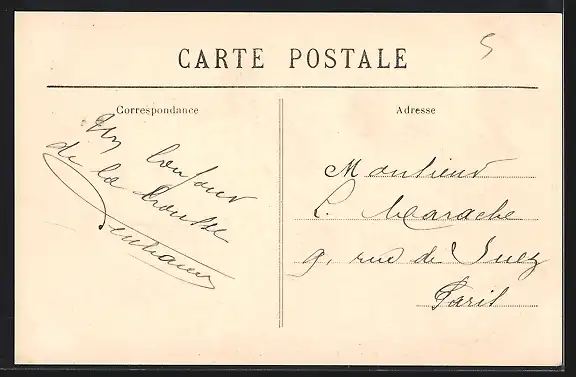 5
CARTE POSTALE
Correspondance
Adresse
Un bonjour
de la
Monsieur
L. Marache
9, rue de Suez
Paris